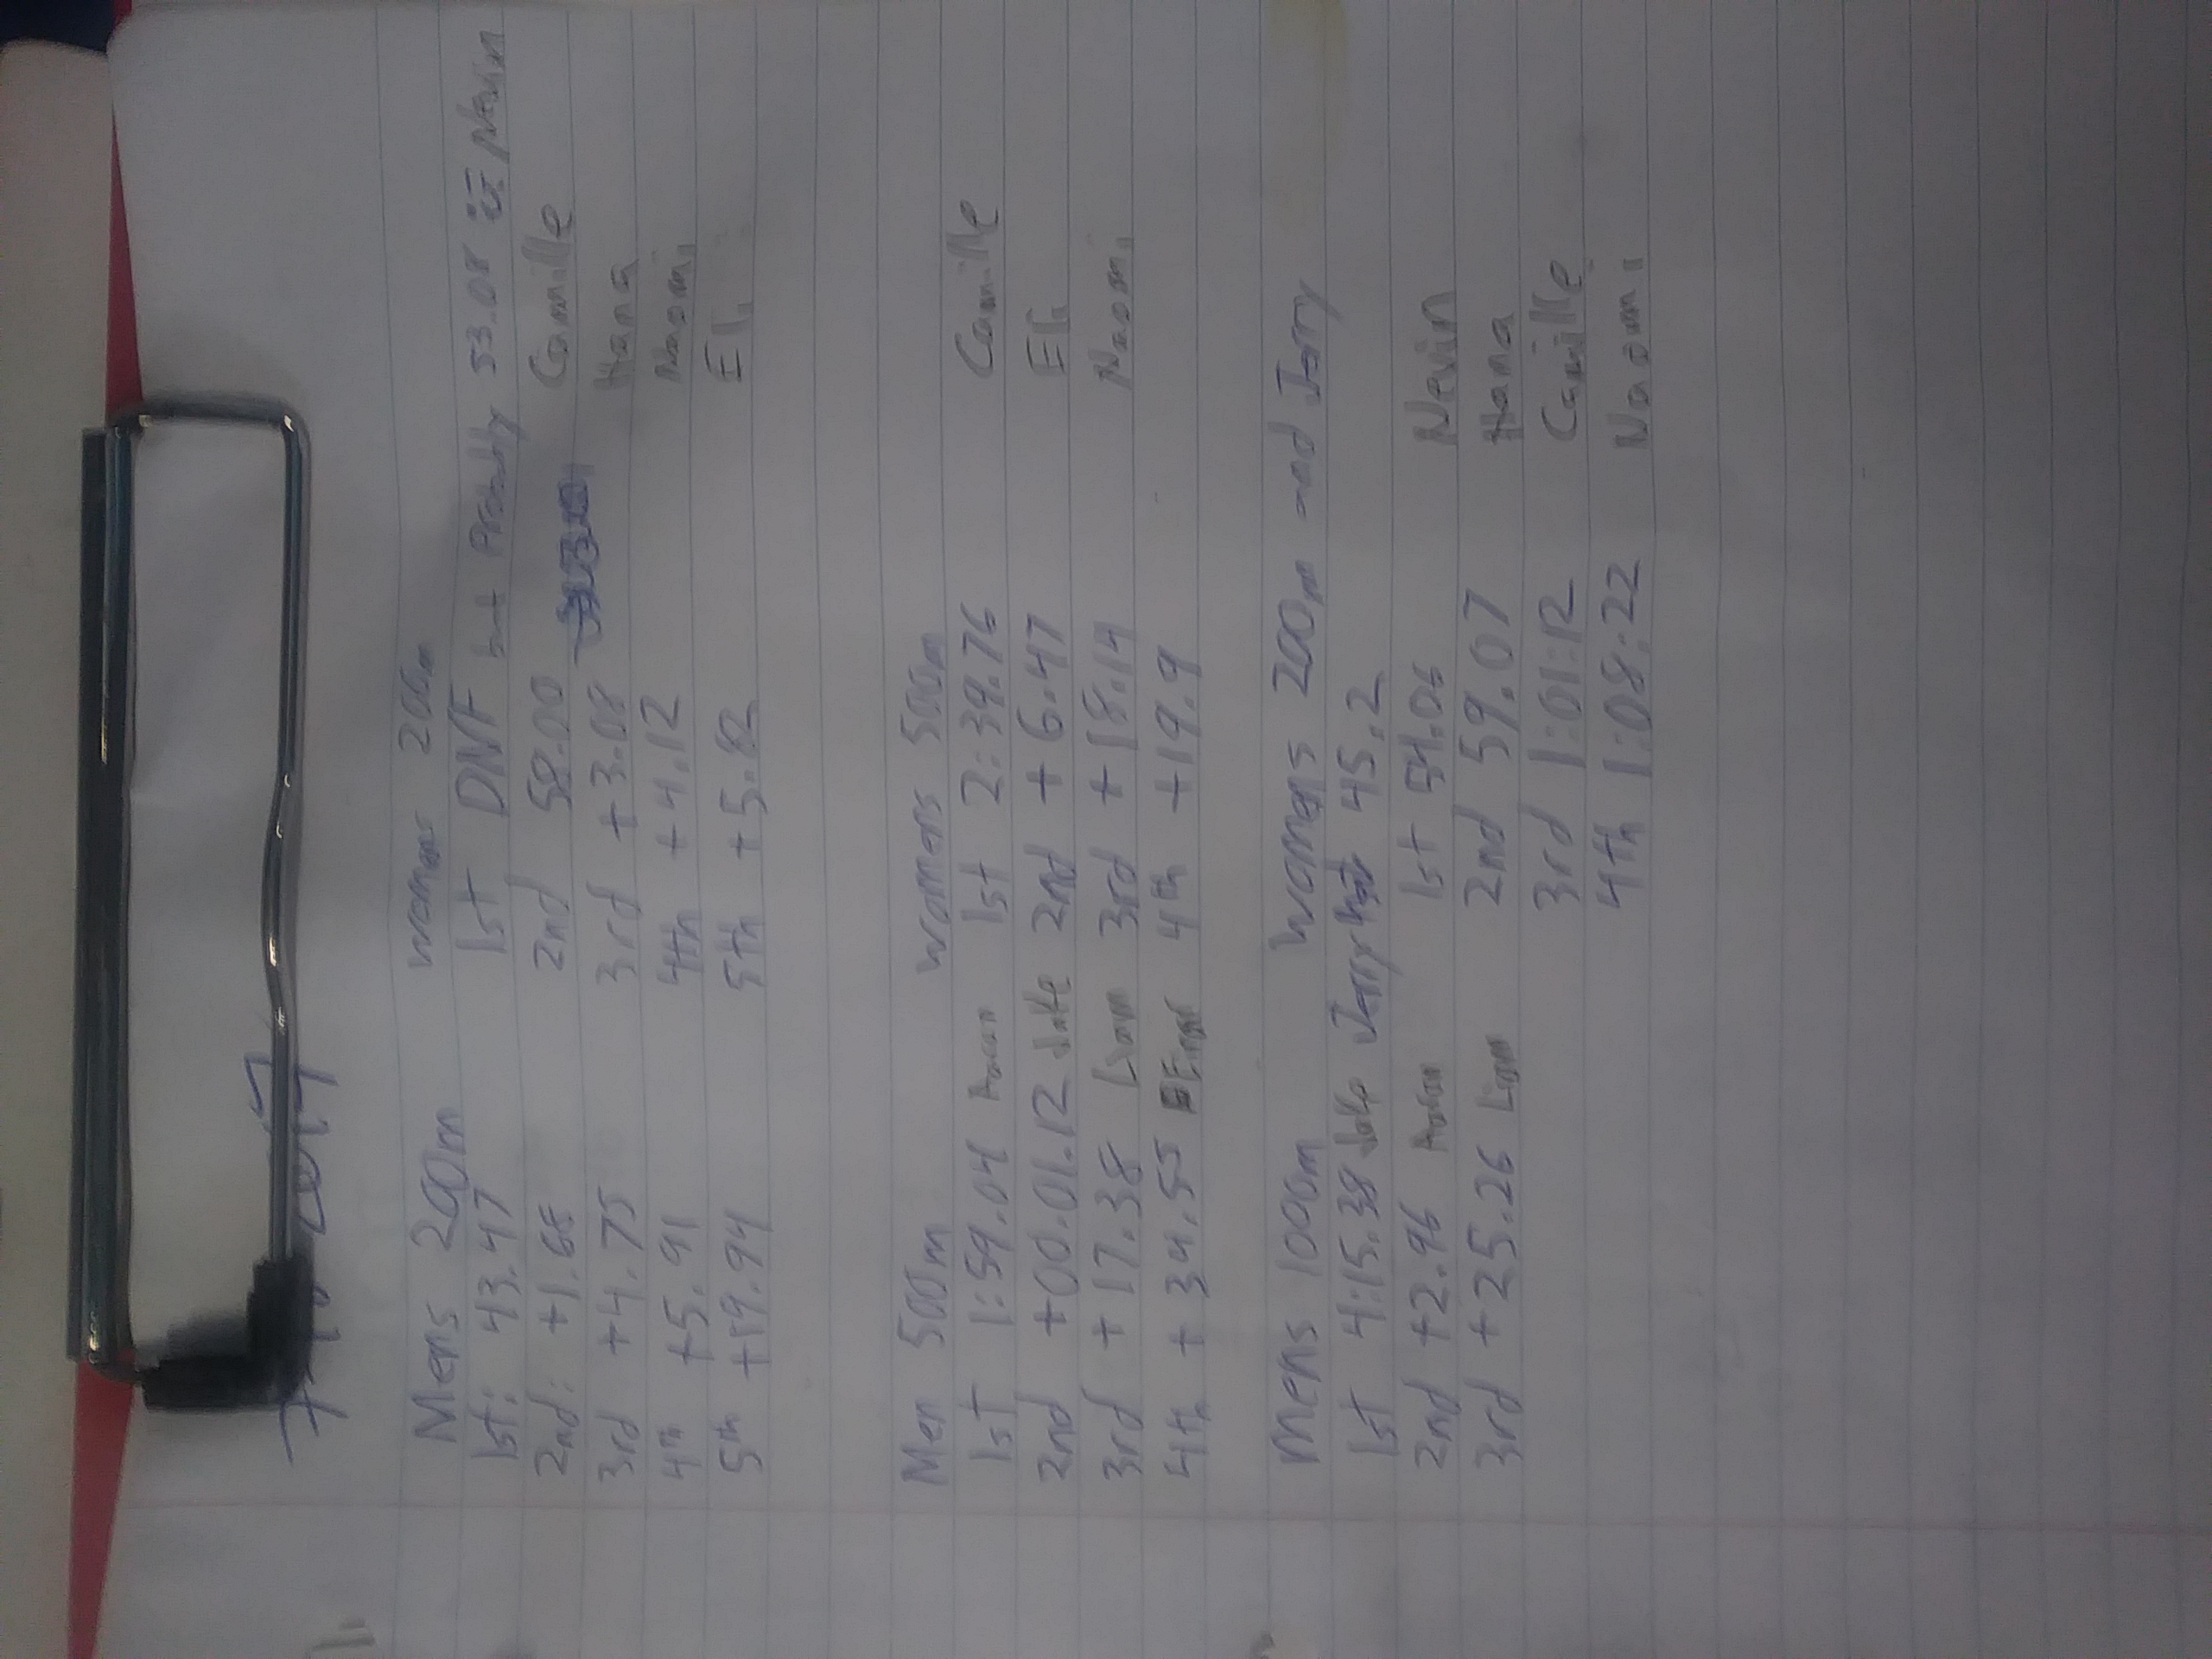 Mens 200m
1st: 43.47
2nd: +1.68
3rd +4.75
4th +5.91
5th +19.94
womens 200m
1st DNF but Probably 53.08 Nevin
2nd 58.00 Camille
3rd +3.08 Hana
4th +4.12 Naomi
5th +5.82 Eli
Men 500m
1st 1:59.04 Aaron
2nd +00.01.12 Jake
3rd +17.38 Liam
4th +34.55
womens 500m
1st 2:39.76 Camille
2nd +6.47 Eli
3rd +18.14 Naomi
4th +19.9
Mens 1000m
1st 4:15.38 Jake
2nd +2.96 Aaron
3rd +25.26 Liam
Womens 200m and Jerry
Jerry 45.2
1st 54.06 Nevin
2nd 59.07 Hana
3rd 1:01:12 Camille
4th 1:08:22 Naomi